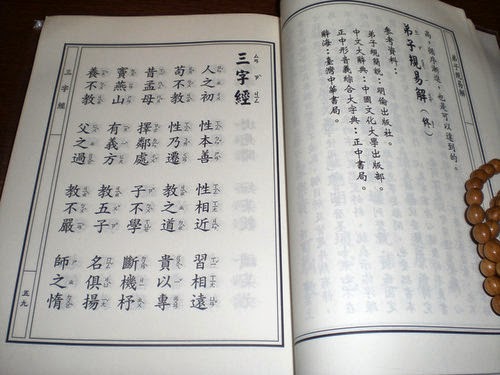 弟子規易解
高，循序漸進，也是可以達到的。
弟子規易解（終）
參考資料：
弟子規簡說：明倫出版社。
中文大辭典：中國文化大學出版部。
正中形音義綜合大字典：正中書局。
辭海：臺灣中華書局。
三字經
人之初 性本善 性相近 習相遠
苟不教 性乃遷 教之道 貴以專
昔孟母 擇鄰處 子不學 斷機杼
竇燕山 有義方 教五子 名俱揚
養不教 父之過 教不嚴 師之惰
三字經
五九